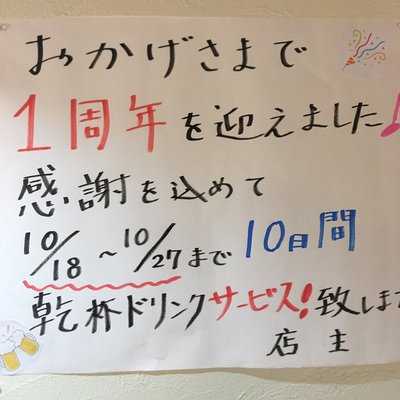 おかげさまで
1周年を迎えました♪
感謝を込めて
10/18〜10/27まで 10日間
乾杯ドリンクサービス!致しま
店主